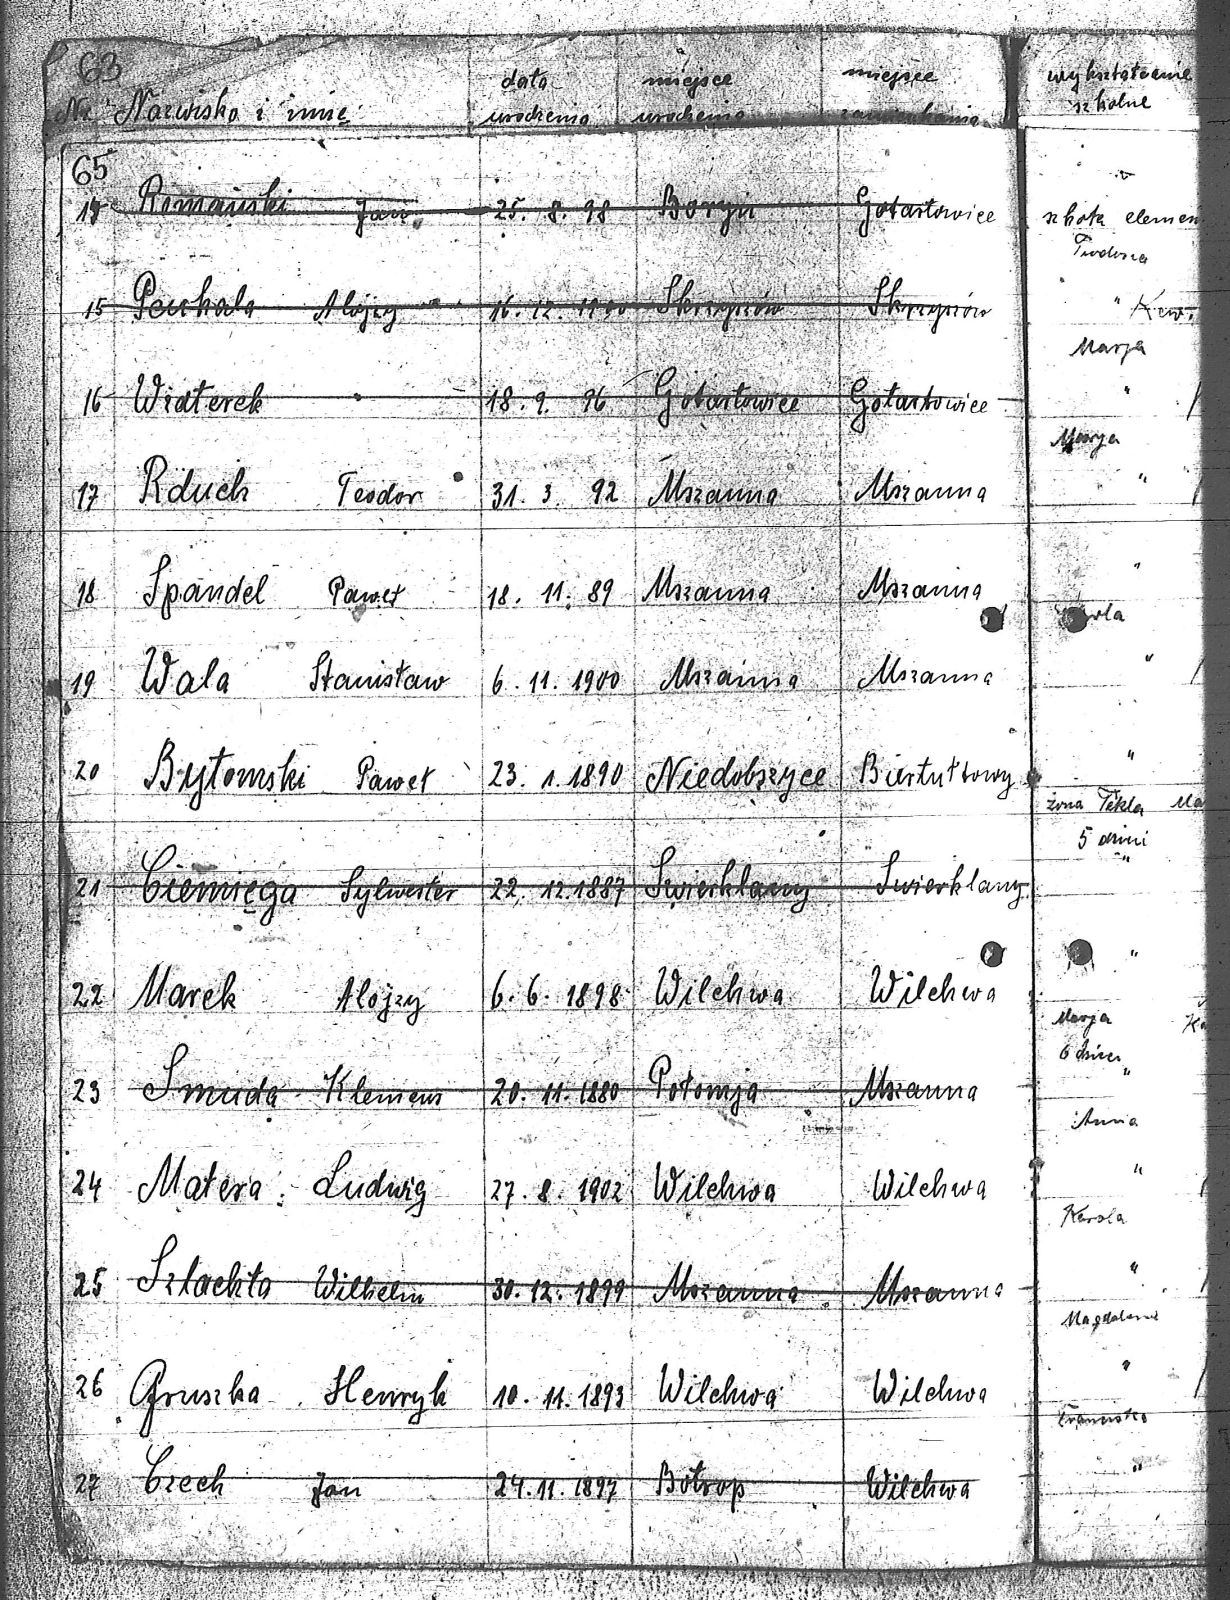 63
Nr Nazwisko i imię data urodzenia miejsce urodzenia miejsce zamieszkania wykształcenie szkolne
65
Romański Jan 25. 8. 98 Boryń Gotartowice szkoła elemen
Teodozia
15 Alojzy 16. 12. 1900 Skrzyszów Skrzyszów "
Marja
16 Widterek " 18. 9. 96 Gotartowice Gotartowice "
Marya
17 Rduch Teodor 31. 3. 92 Mszanna Mszanna "
18 Spandel Paweł 18. 11. 89 Mszanna Mszanna "
19 Wala Stanisław 6. 11. 1900 Mszanna Mszanna "
20 Bytomski Paweł 23. 1. 1890 Niedobszyce "
żona Tekla Ma
5 dzieci
21 Ciemięga Sylwester 22. 12. 1887 Swierklany Swierklany "
22 Marek Alojzy 6. 6. 1898 Wilchwa Wilchwa "
Marja
6 dzieci
23 Smuda Klemens 20. 11. 1880 Połomja Mszanna "
Anna
24 Matera Ludwig 27. 8. 1902 Wilchwa Wilchwa "
Karola
25 Szlachta Wilhelm 30. 12. 1899 Mszanna Mszanna "
Magdalena
26 Gruszka Henryk 10. 11. 1893 Wilchwa Wilchwa "
Franciszka
27 Czech Jan 24. 11. 1897 Botrop Wilchwa "